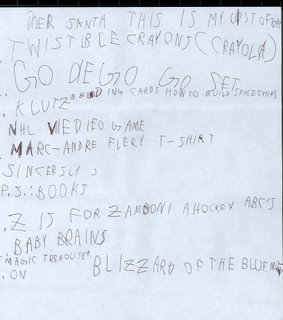 DER SANTA THIS IS MY LIST OF
TWISTIBLE CRAYONS (CRAYOLA)
GO DIEGO GO SET
. KLUTZ BUILDING CARDS HOW TO BUILD SPACESHIPS
. NHL VIEDIEO GAME
. MARC-ANDRE FLERY T-SHIRT
SINCERSLY
P.S.: BOOKS
. Z IS FOR ZAMBONI A HOCKEY ABC'S
BABY BRAINS
"MAGIC TREHOUTE"
. ON BLIZZARD OF THE BLUE